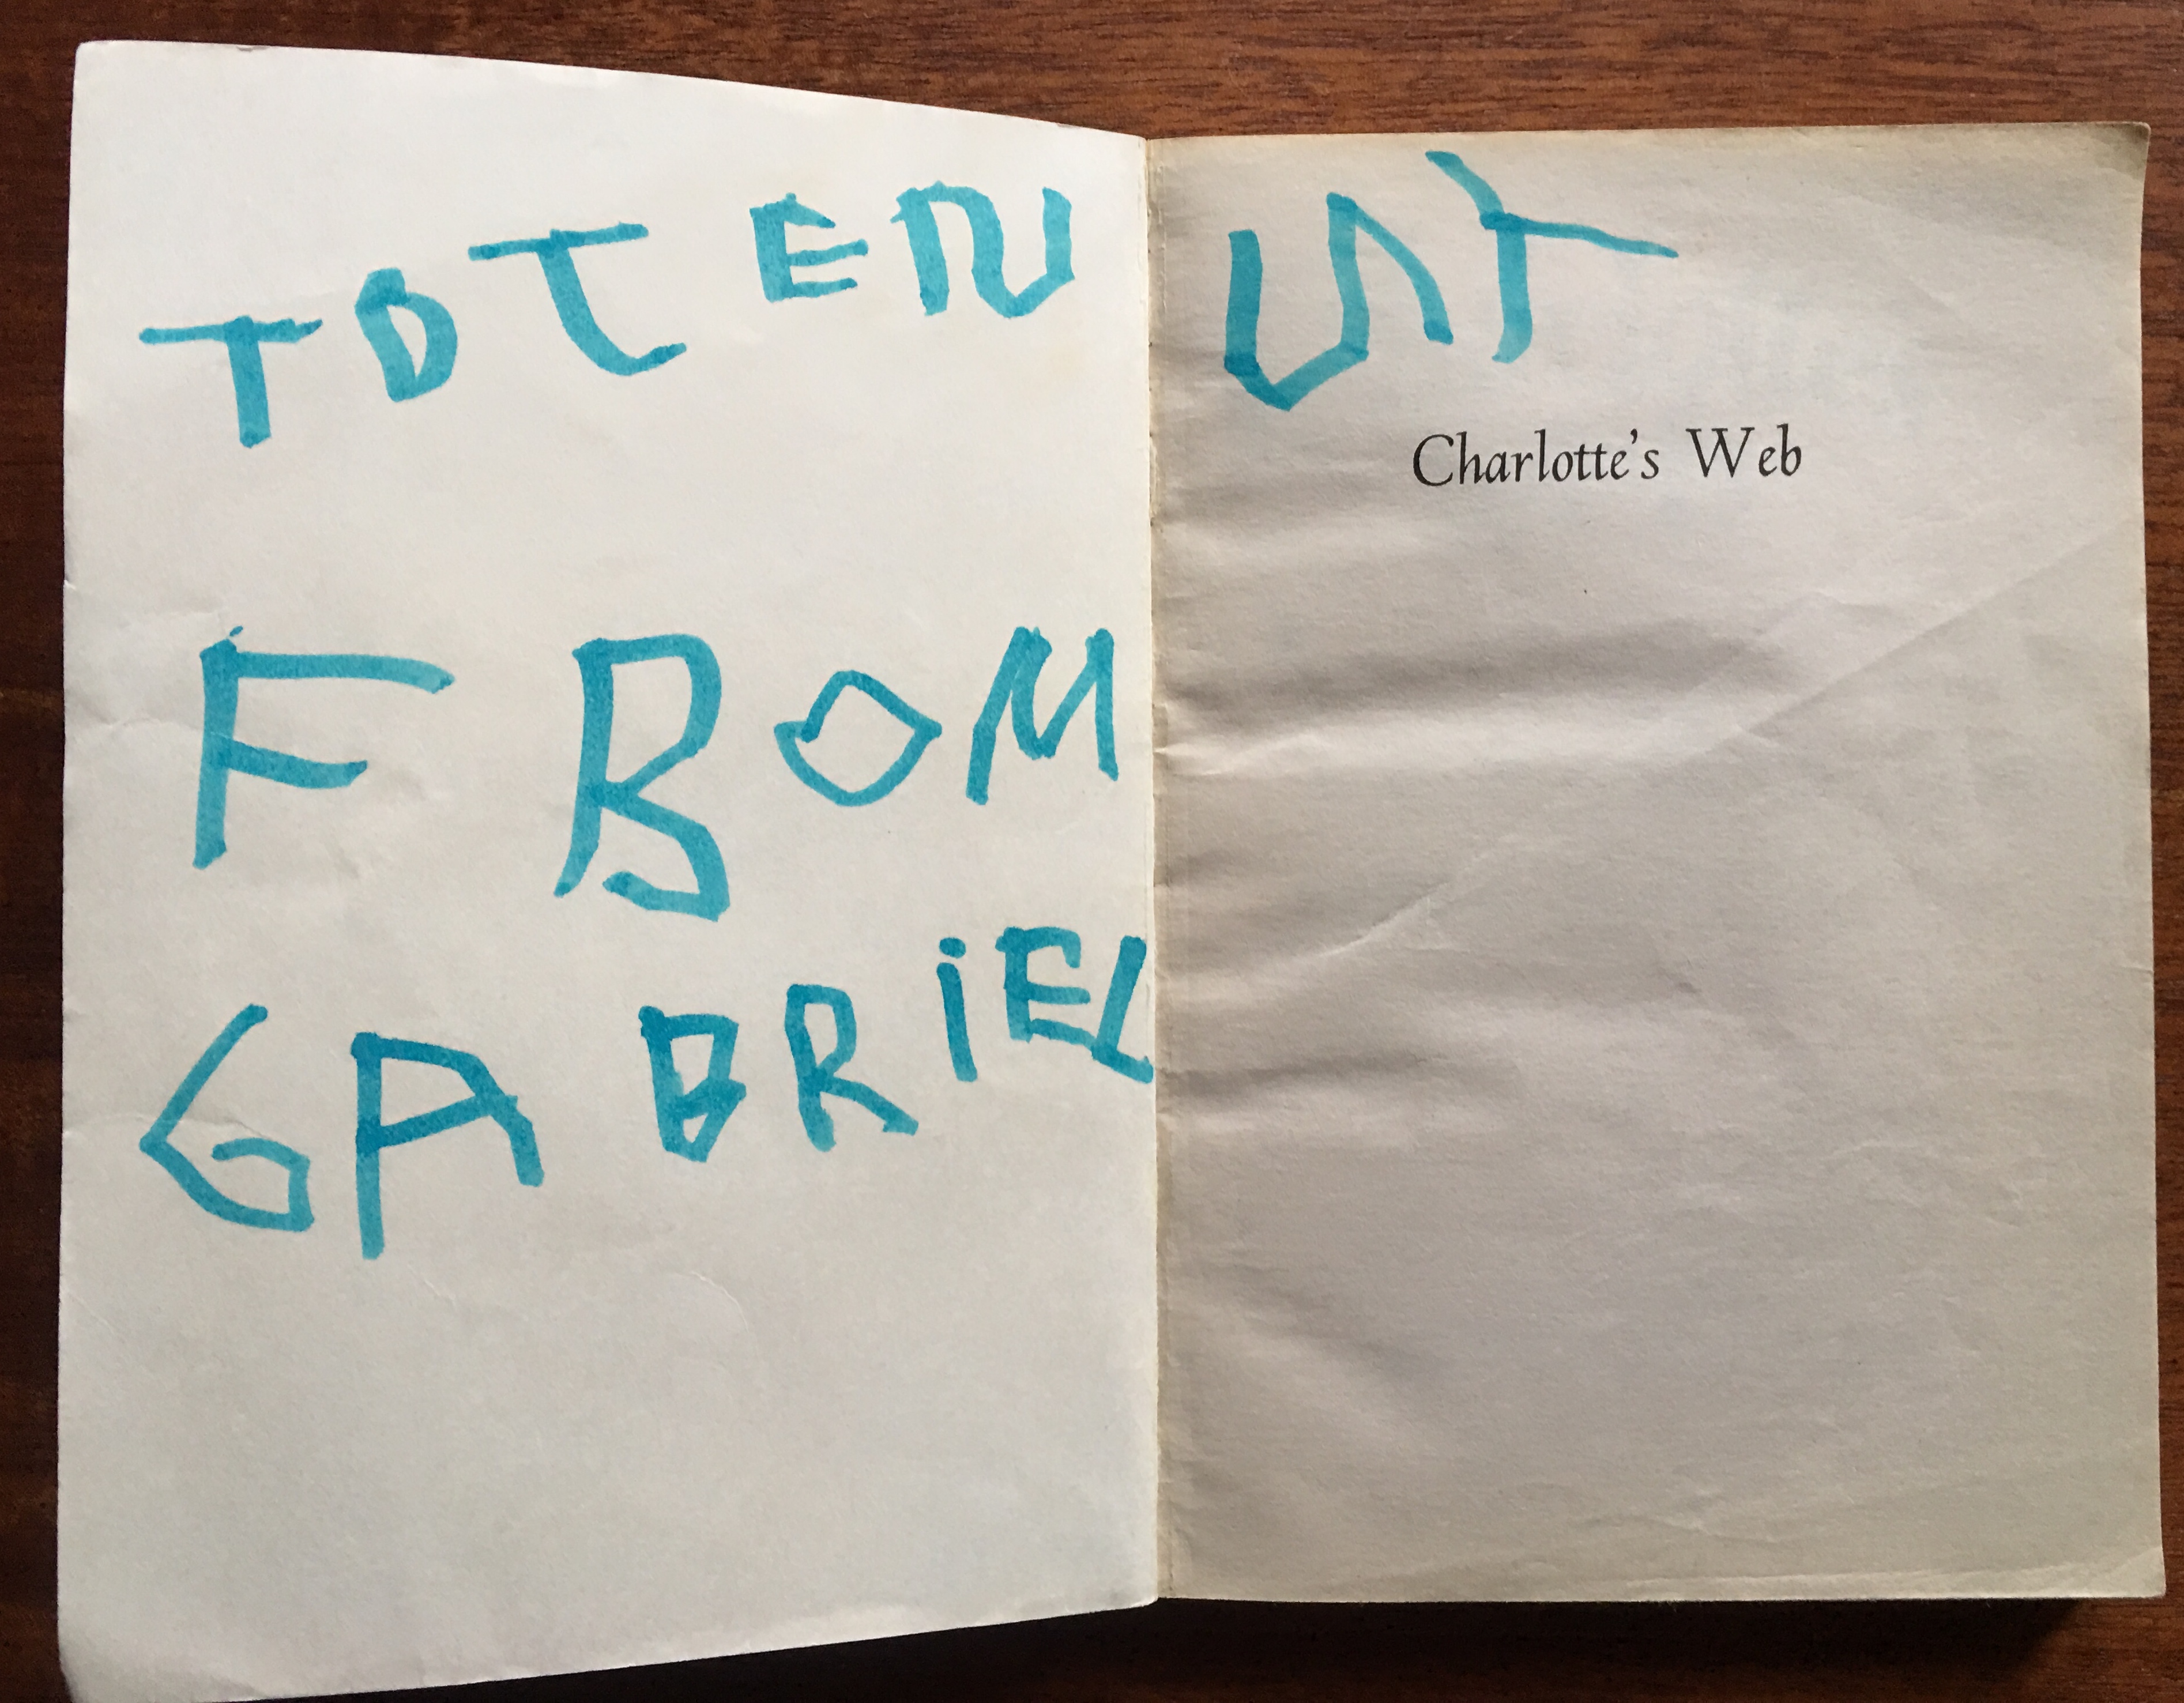 TO JENNY
Charlotte's Web
FROM
GABRIEL